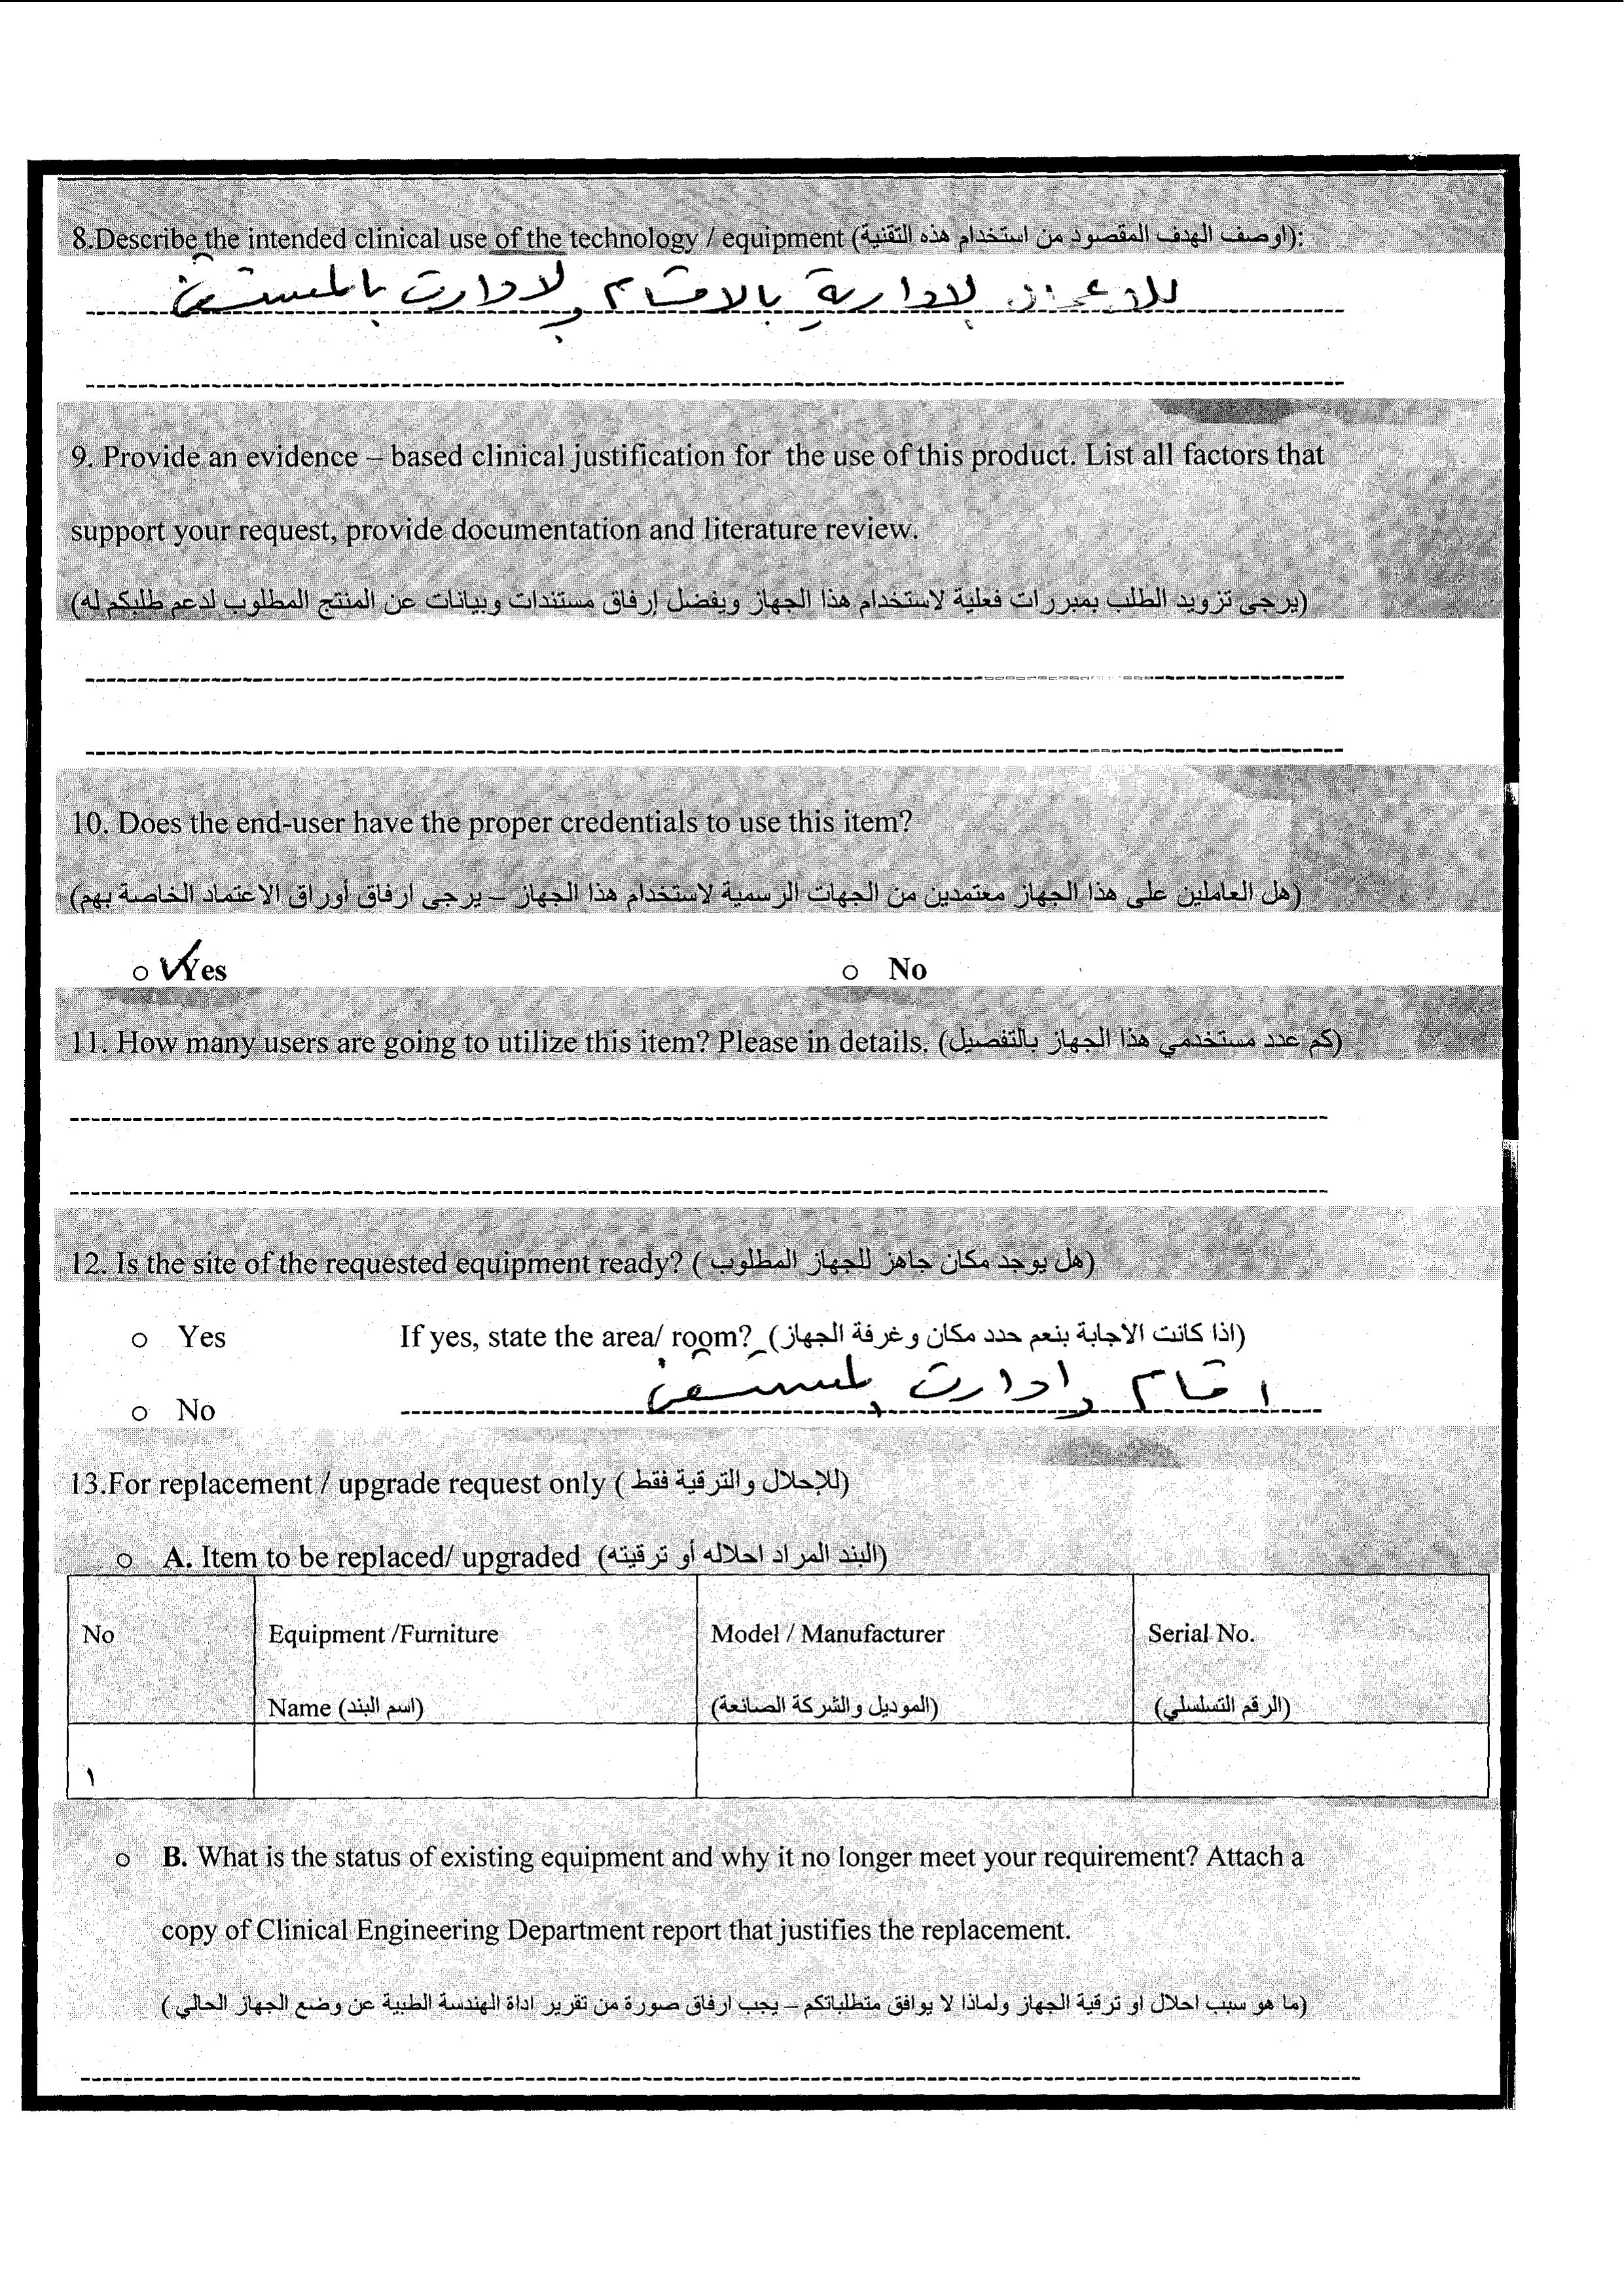 8.Describe the intended clinical use of the technology / equipment (اوصف الهدف المقصود من استخدام هذه التقنية):
الادارية بالاقسام والادارات بالمستشفى
9. Provide an evidence – based clinical justification for the use of this product. List all factors that
support your request, provide documentation and literature review.
(يرجى تزويد الطلب بمبررات فعلية لاستخدام هذا الجهاز ويفضل إرفاق مستندات وبيانات عن المنتج المطلوب لدعم طلبكم له)
10. Does the end-user have the proper credentials to use this item?
(هل العاملين على هذا الجهاز معتمدين من الجهات الرسمية لاستخدام هذا الجهاز – يرجى ارفاق أوراق الاعتماد الخاصة بهم)
o ✓Yes o No
11. How many users are going to utilize this item? Please in details. (كم عدد مستخدمي هذا الجهاز بالتفصيل)
12. Is the site of the requested equipment ready? ( هل يوجد مكان جاهز للجهاز المطلوب)
o Yes If yes, state the area/ room? (اذا كانت الاجابة بنعم حدد مكان وغرفة الجهاز)
o No اقسام وادارت بالمستشفى
13.For replacement / upgrade request only ( للإحلال والترقية فقط)
o A. Item to be replaced/ upgraded (البند المراد احلاله أو ترقيته)
No Equipment /Furniture Model / Manufacturer Serial No.
Name (اسم البند) (الموديل والشركة الصانعة) (الرقم التسلسلي)
١
o B. What is the status of existing equipment and why it no longer meet your requirement? Attach a
copy of Clinical Engineering Department report that justifies the replacement.
(ما هو سبب احلال او ترقية الجهاز ولماذا لا يوافق متطلباتكم – يجب ارفاق صورة من تقرير اداة الهندسة الطبية عن وضع الجهاز الحالي )